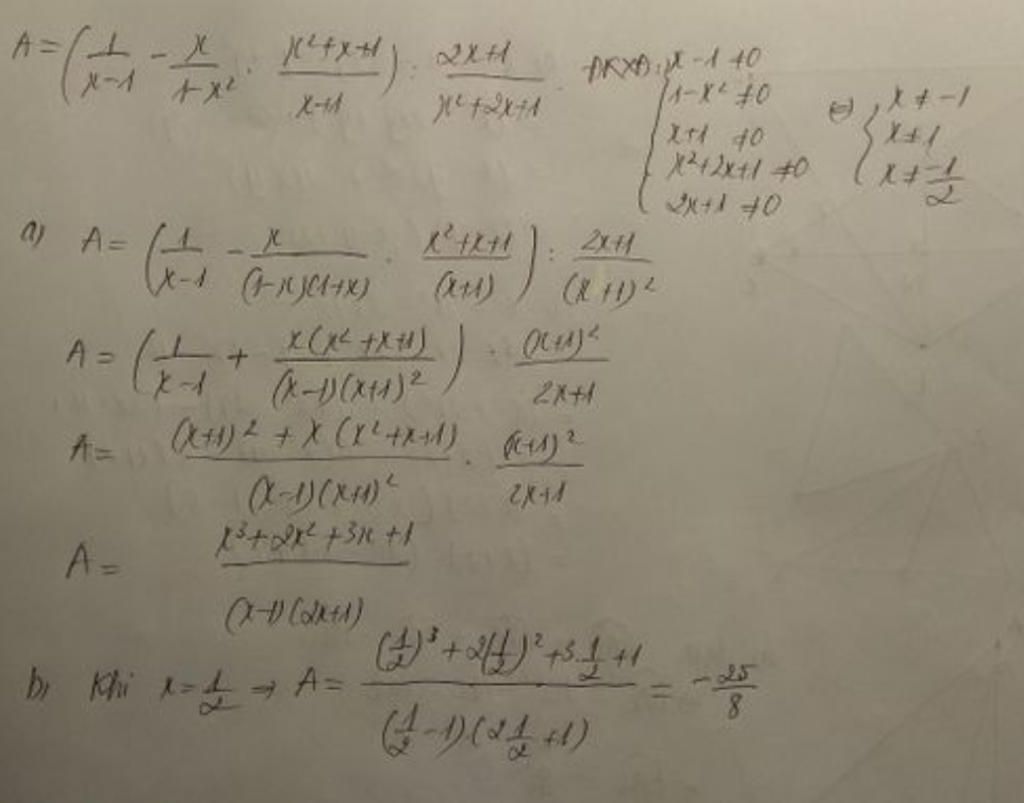 A = (1/(x-1) - x/(1-x²) . (x²+x+1)/(x+1)) : (2x+1)/(x²+2x+1) ĐKXĐ: { x-1 ≠0
1-x² ≠0
x+1 ≠0
x²+2x+1 ≠0
2x+1 ≠0
⇔ { x ≠ -1
x ≠ 1
x ≠ -1/2
a) A = (1/(x-1) - x/((1-x)(1+x)) . (x²+x+1)/(x+1)) : (2x+1)/(x+1)²
A = (1/(x-1) + x(x²+x+1)/((x-1)(x+1)²)) . (x+1)²/(2x+1)
A = ((x+1)² + x(x²+x+1))/((x-1)(x+1)²) . (x+1)²/(2x+1)
A = (x³+2x²+3x+1)/((x-1)(2x+1))
b) Khi x = 1/2 → A = ((1/2)³+2(1/2)²+3.1/2+1)/((1/2-1)(2 1/2+1)) = -25/8